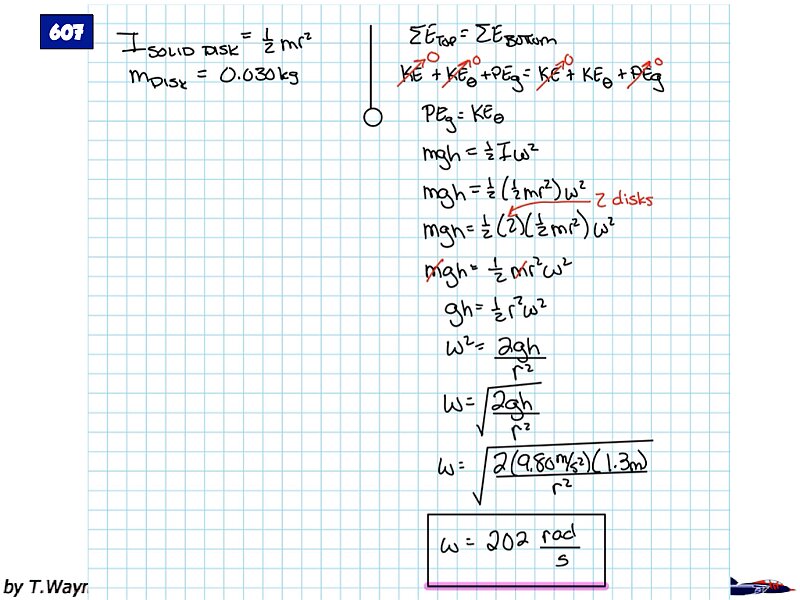 607
I SOLID DISK = 1/2 mr²
m DISK = 0.030 kg
ΣE TOP = ΣE BOTTOM
KE→0 + KEθ→0 + PEg = KE→0 + KEθ + PEg→0
PEg = KEθ
mgh = 1/2 I ω²
mgh = 1/2 (1/2 mr²) ω²
2 disks
mgh = 1/2 (2)(1/2 mr²) ω²
mgh = 1/2 mr²ω²
gh = 1/2 r²ω²
ω² = 2gh/r²
ω = √(2gh/r²)
ω = √(2(9.80 m/s²)(1.3m)/r²)
ω = 202 rad/s
by T.Wayn